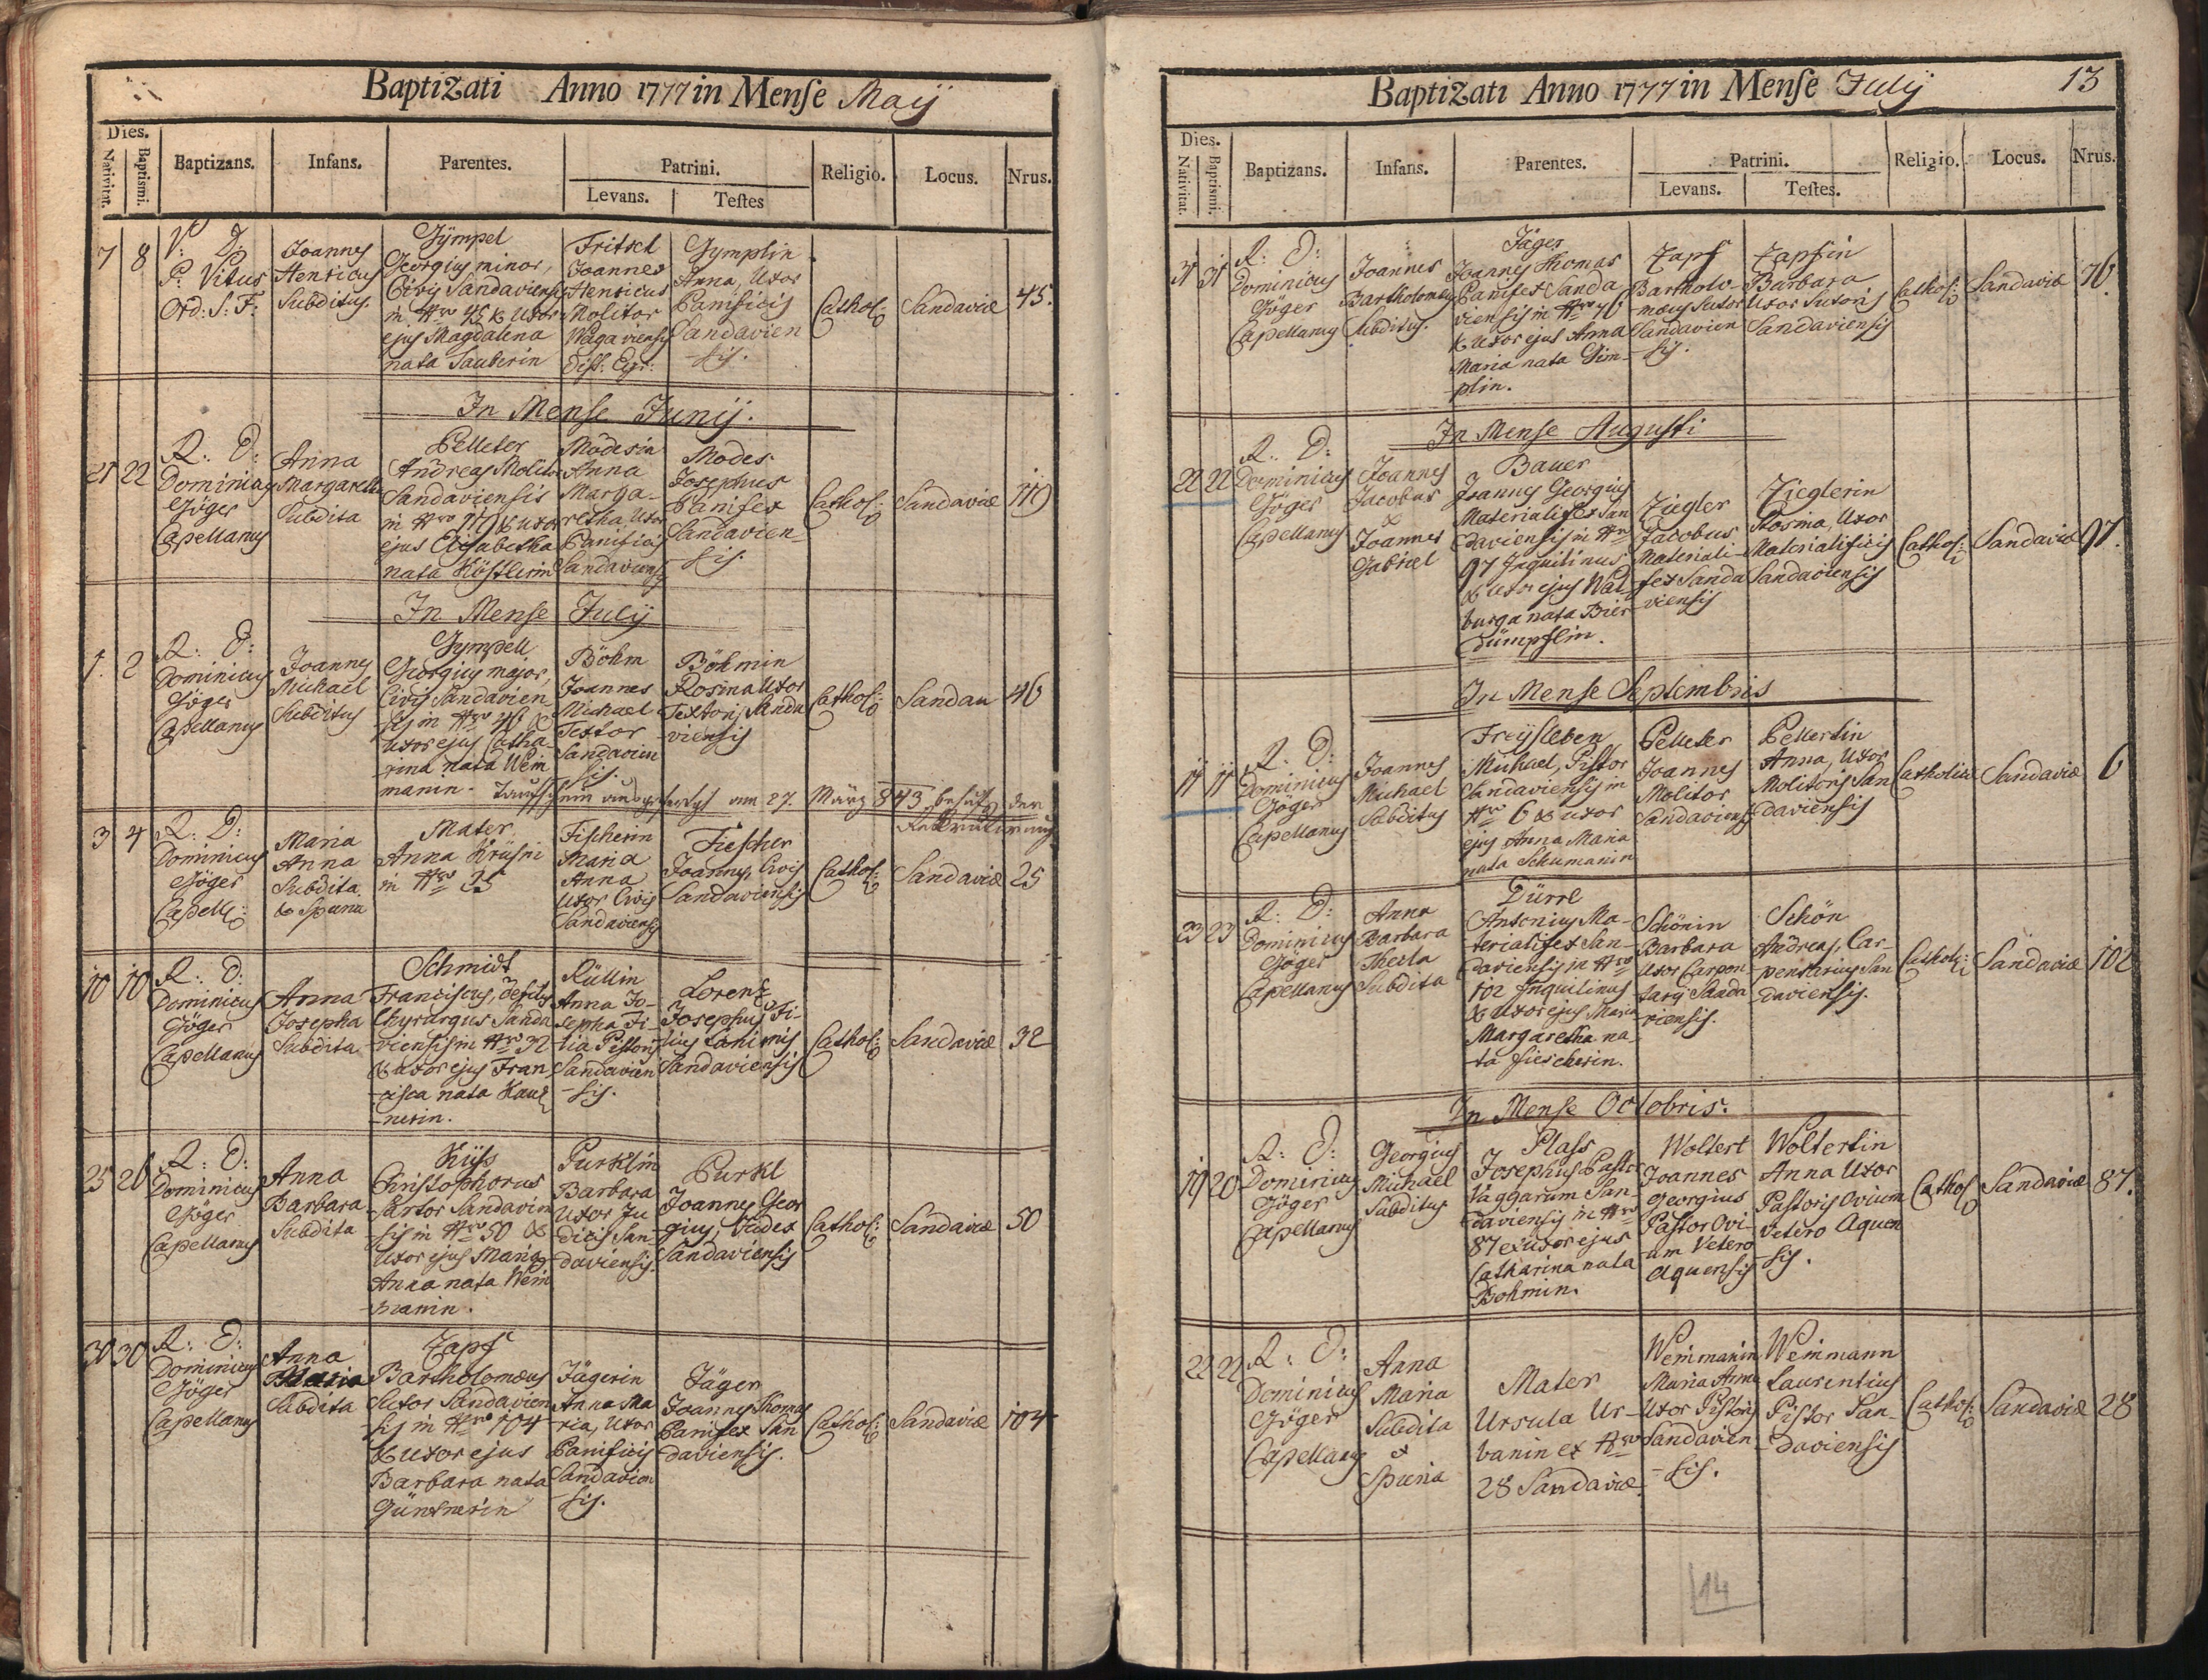 Baptizati Anno 1777 in Menſe Maij
Dies.
Nativitat.
Baptismi.
Baptizans.
Infans.
Parentes.
Patrini.
Levans.
Teſtes
Religio.
Locus.
Nrus.
7 8
V: D:
P: Vitus
Ord: S: F:
Joannes
Henricus
Subditus.
Gÿmpel
Georgius minor,
Civis Sandaviensis
in Nro 45 & Uxor
ejus Magdalena
nata Sauberin
Fritsch
Joannes
Henricus
Molitor
Wagaviensis
Diſt: Egr:
Gymplin
Anna, Uxor
Panificis
Sandavien
-sis.
Cathol:
Sandaviæ
45.
In Menſe Junij.
21 22
R: D:
Dominicus
Jöger
Capellanus
Anna
Margaretha
Subdita
Pelleter
Andreas Molitor
Sandaviensis
in Nro 119 & uxor
ejus Elisabetha
nata Köstlerin
Mödesin
Anna
Marga-
retha, Uxor
Panificis
Sandaviensis
Modes
Josephus
Panifex
Sandavien-
sis.
Cathol:
Sandaviæ
119
In Menſe Julij
1. 2
R: D:
Dominicus
Jöger
Capellanus
Joannes
Michael
Subditus
Gympell
Georgius major,
Civis Sandavien-
sis in Nro 46 &
uxor ejus Catha-
rina nata Wein
manin.
Böhm
Joannes
Michael
Textor
Sandavien
sis.
Böhmin
Rosina Uxor
Textoris Sanda
viensis
Cathol:
Sandau
46
Taufschein ausgefertigt am 27. März 843 behufs der
Rekrutirung
3 4
R: D:
Dominicus
Jöger
Capell:
Maria
Anna
Subdita
& Spuria
Mater
Anna Krüsin
in Nro 25
Fischerin
Maria
Anna
Uxor Civis
Sandaviensis
Fiescher
Joannes, Civis
Sandaviensis
Cathol:
Sandaviæ
25
10 10
R: D:
Dominicus
Jöger
Capellanus
Anna
Josepha
Subdita
Schmidt
Franciscus,
Chyrurgus Sanda
viensis in Nro 32
& uxor ejus Fran
cisca nata
-nerin.
Rüllin
Anna Jo-
sepha Fi-
lia Pistoris
Sandavien
-sis.
Lorenz
Josephus Fi-
lius Lanionis
Sandaviensis
Cathol:
Sandaviæ
32
25 26
R: D:
Dominicus
Jöger
Capellanus
Anna
Barbara
Subdita
Küss
Christophorus
Sartor Sandavien
-sis in Nro 50 &
Uxor ejus Maria
Anna nata Wein
manin.
Purklin
Barbara
Uxor Ju
dicis San-
daviensis.
Purkl
Joannes Geor
gius, Judex
Sandaviensis
Cathol:
Sandaviæ
50
30 30
R: D:
Dominicus
Jöger
Capellanus
Anna
Maria
Subdita
Zapf
Bartholomæus
Sutor Sandavien
sis in Nro 104
& Uxor ejus
Barbara nata
Güntnerin
Jägerin
Anna Ma
ria, Uxor
Panificis
Sandavien
sis.
Jäger
Joannes Thomas
Panifex San
daviensis.
Cathol:
Sandaviæ
104
Baptizati Anno 1777 in Menſe Julij
13
Dies.
Nativitat.
Baptismi.
Baptizans.
Infans.
Parentes.
Patrini.
Levans.
Teſtes.
Religio.
Locus.
Nrus.
31 31
R: D:
Dominicus
Jöger
Capellanus
Joannes
Bartholomeus
Subditus.
Jäger
Joannes Thomas
Panifex Sanda
viensis in Nro 76
& uxor ejus Anna
Maria nata Gim-
plin.
Zapf
Bartholo-
mæus Sutor
Sandavien
-sis.
Zapfin
Barbara
Uxor Sutoris
Sandaviensis
Cathol:
Sandaviæ
76.
In Menſe Auguſti
22 22
R: D:
Dominicus
Jöger
Capellanus
Joannes
Jacobus
&
Joannes
Gabriel
Bauer
Joannes Georgius
Materialifex San
daviensis in Nro
97 Inquilinus
& Uxor ejus Wal
burga nata Bier
dümpflin.
Ziegler
Jacobus
Materiali-
fex Sanda
viensis
Zieglerin
Rosina, Uxor
Materialificis
Sandaviensis
Cathol:
Sandaviæ
97.
In Menſe Septembris
11 11
R: D:
Dominicus
Jöger
Capellanus
Joannes
Michael
Subditus
Freÿsleben
Michael, Pistor
Sandaviensis in
Nro 6 & uxor
ejus Anna Maria
nata Schumanin
Pelleter
Joannes
Molitor
Sandaviensis
Pellertin
Anna, Uxor
Molitoris San
daviensis
Catholicæ
Sandaviæ
6
23 23
R: D:
Dominicus
Jöger
Capellanus
Anna
Barbara
Thecla
Subdita
Dürrl
Antonius Ma-
terialifex San-
daviensis in Nro
102 Inquilinus
& uxor ejus Maria
Margaretha na-
ta Fiescherin.
Schönin
Barbara
Uxor Carpen
tarij Sanda
viensis.
Schön
Andreas, Car-
pentarius San
daviensis.
Cathol:
Sandaviæ
102
In Menſe Octobris.
19 20
R: D:
Dominicus
Jöger
Capellanus
Georgius
Michael
Subditus
Plass
Josephus Pastor
Vaggarum San-
daviensis in Nro
87 & uxor ejus
Catharina nata
Bohmin.
Woltert
Joannes
Georgius
Pastor Ovi-
um Vetero
aquensis
Woltertin
Anna Uxor
Pastoris Ovium
Vetero Aquen
sis.
Cathol
Sandaviæ
87.
22 22
R: D:
Dominicus
Jöger
Capellanus
Anna
Maria
Subdita
&
Spuria
Mater
Ursula Ur-
banin ex Nro
28 Sandaviæ.
Weinmanin
Maria Anna
Uxor Pistoris
Sandavien
-sis.
Weinmann
Laurentius
Pistor San-
daviensis
Cathol:
Sandaviæ
28
14